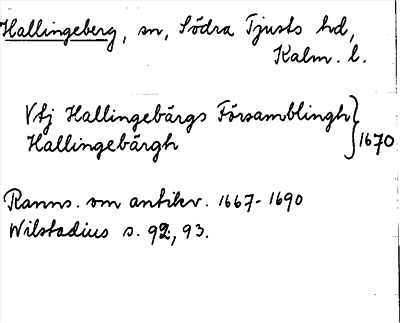 Hallingeberg, sn, Södra Tjusts hd,
Kalm. l.
Vtj Hallingebärgs Församblingh
Hallingebärgh } 1670
Ranns. om antikv. 1667-1690
Wilstadius s. 92, 93.